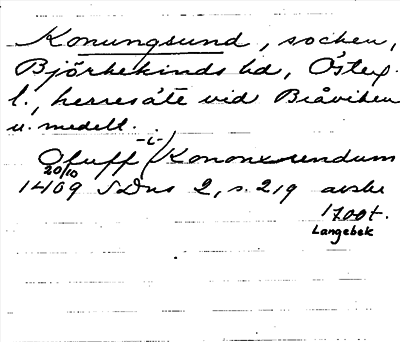 Konungsund, socken,
Björkekinds hd, Österg.
l., herresäte vid Bråviken
u. medelt.
Oluff (-i-) Kononxsundum
20/10
1409 SDns 2, s. 219 avskr
1700t.
Langebek